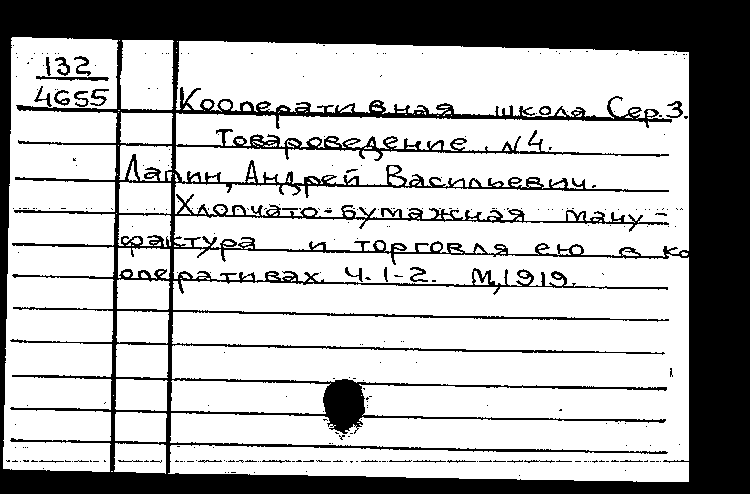 132
4655
Кооперативная школа. Сер.3.
Товароведение. N4.
Лапин, Андрей Васильевич.
Хлопчато-бумажная ману-
фактура и торговля ею в ко
оперативах. Ч.1-2. М,1919.